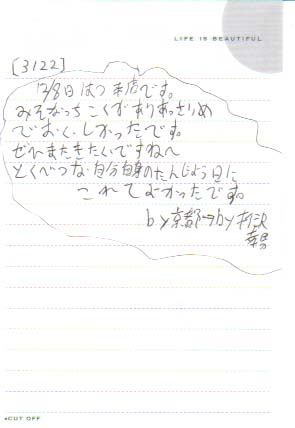 LIFE IS BEAUTIFUL
[3122]
12/8日はつ来店です。
みそなっち こくがありあっさりめ
でおくしかったです。
ぜひまたきたいですねへ
とくべつな自分自身のたんじょう日に
これてよかったです。
by京都→by
CUT OFF